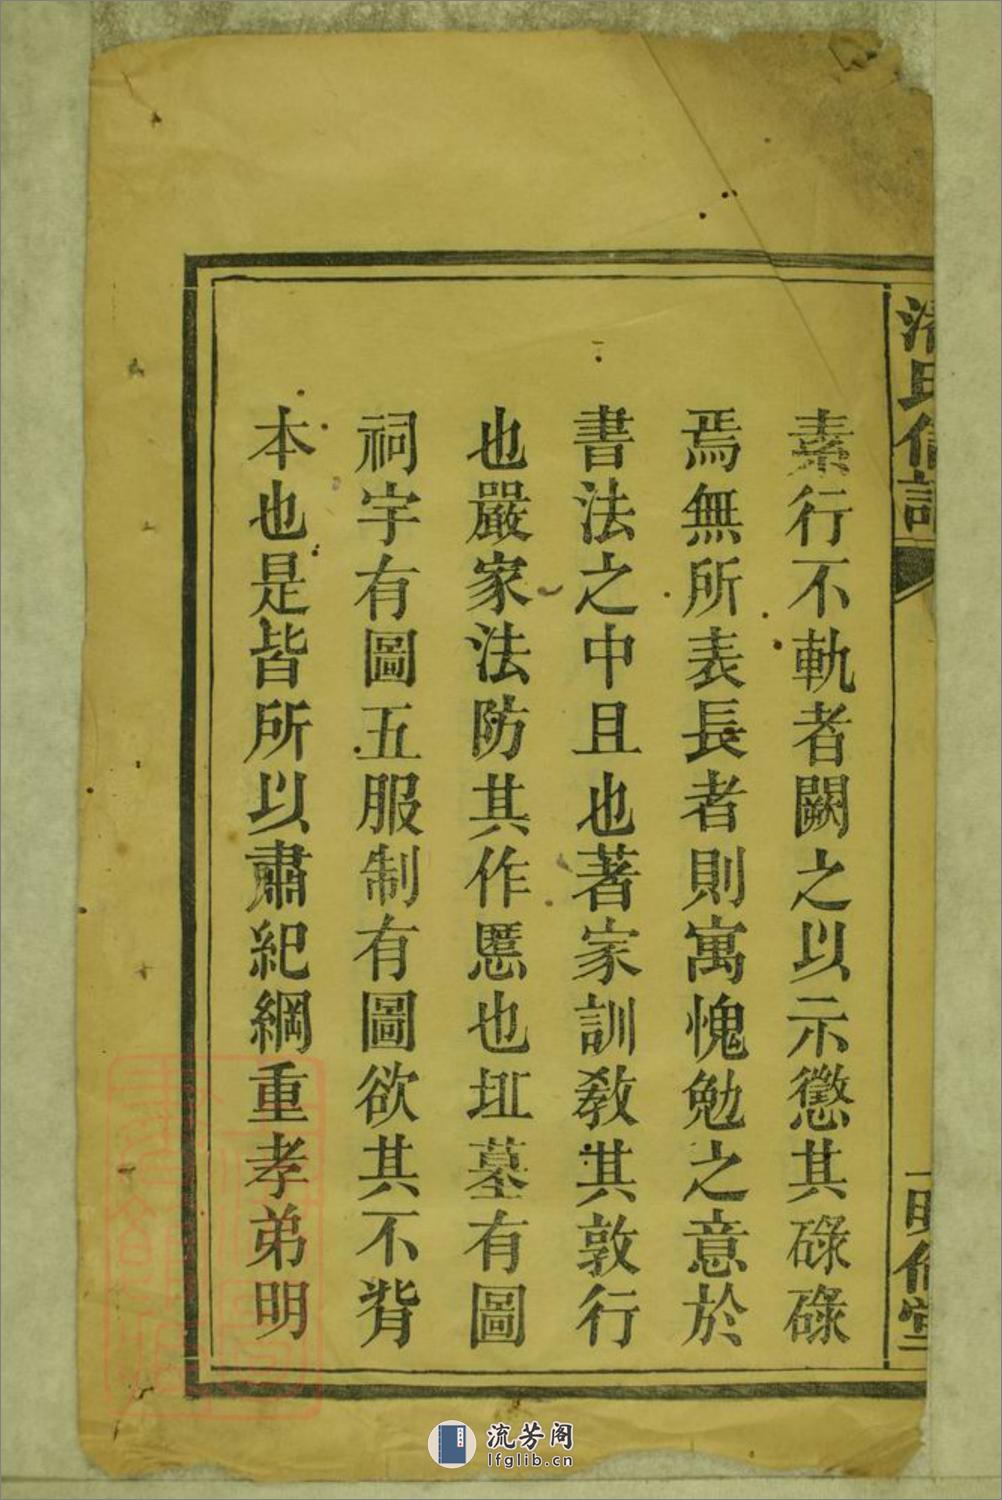 素行不軌者闕之以示懲其碌碌
焉無所表長者則寓愧勉之意於
書法之中且也著家訓教其敦行
也嚴家法防其作慝也坵墓有圖
祠宇有圖五服制有圖欲其不背
本也是皆所以肅紀綱重孝弟明
流芳阁
lfglib.cn